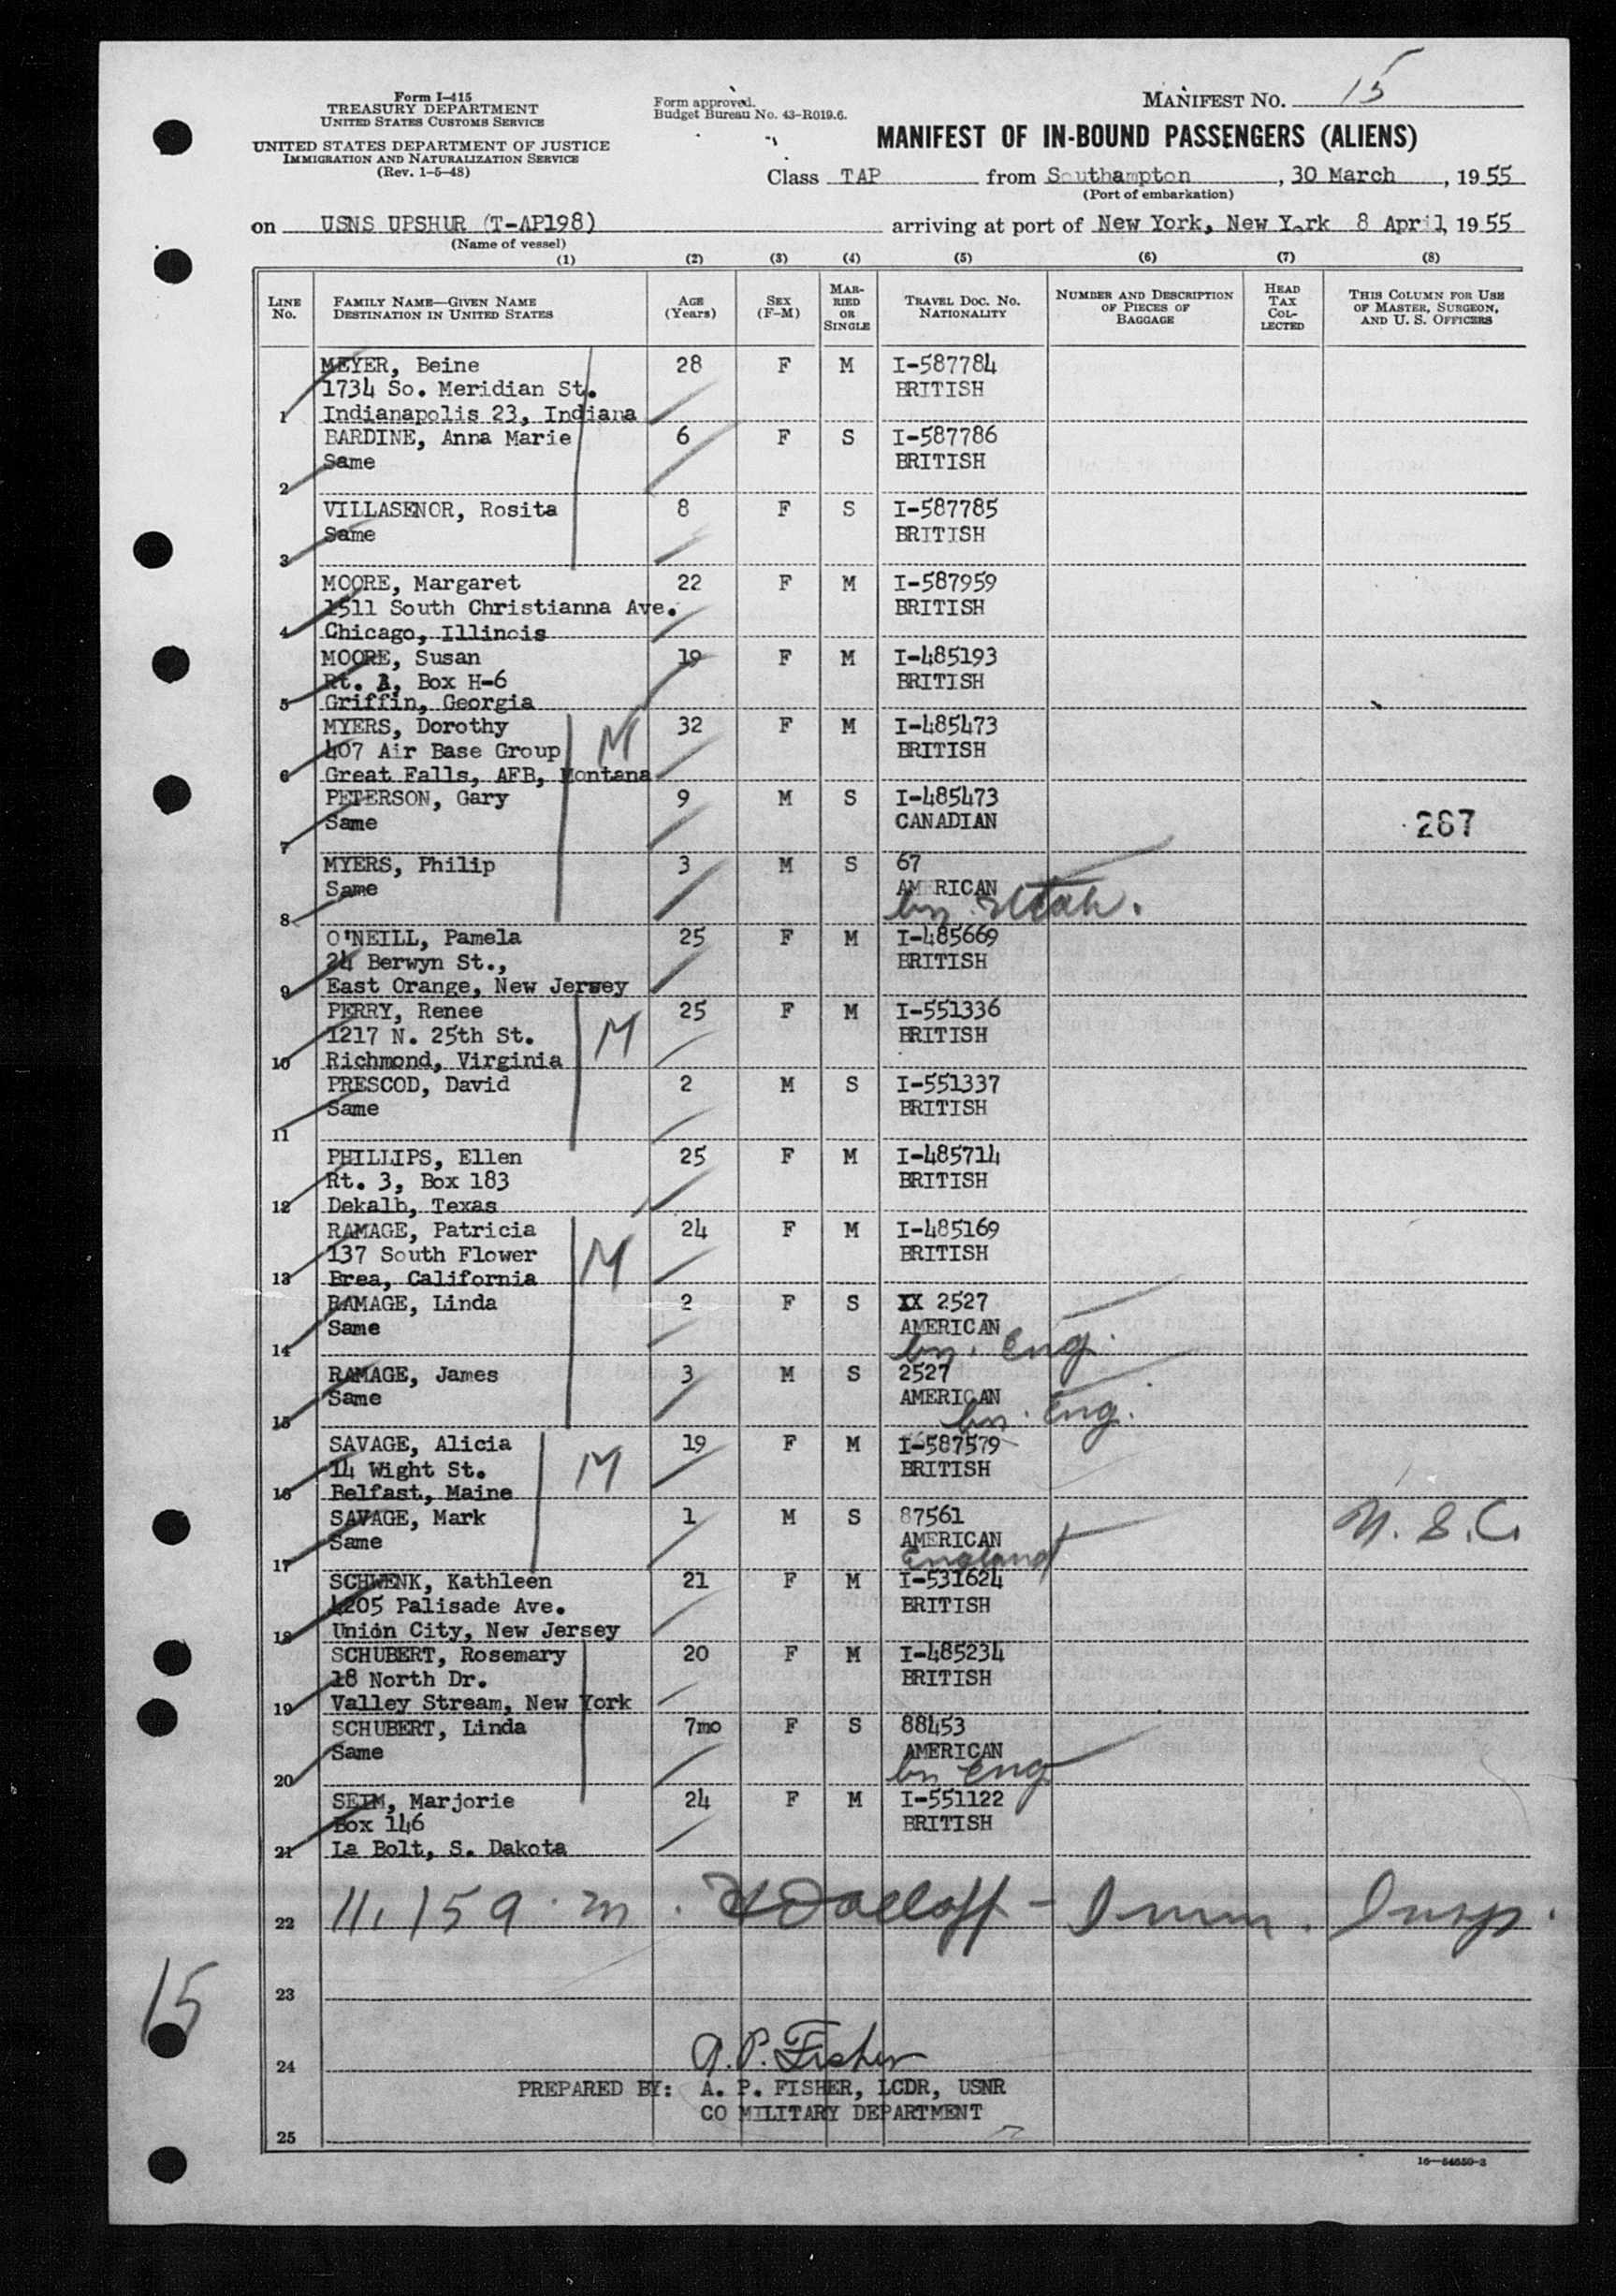 Form I-415
TREASURY DEPARTMENT
UNITED STATES CUSTOMS SERVICE
UNITED STATES DEPARTMENT OF JUSTICE
IMMIGRATION AND NATURALIZATION SERVICE
(Rev. 1-5-48)
Form approved.
Budget Bureau No. 43-R019.6.
MANIFEST NO. 15
MANIFEST OF IN-BOUND PASSENGERS (ALIENS)
Class TAP from Southampton, 30 March, 1955
(Port of embarkation)
on USNS UPSHUR (T-AP198) arriving at port of New York, New York 8 April, 1955
(Name of vessel)
(1) (2) (3) (4) (5) (6) (7) (8)
LINE No. FAMILY NAME—GIVEN NAME DESTINATION IN UNITED STATES AGE (Years) SEX (F-M) MARRIED OR SINGLE TRAVEL DOC. NO. NATIONALITY NUMBER AND DESCRIPTION OF PIECES OF BAGGAGE HEAD TAX COLLECTED THIS COLUMN FOR USE OF MASTER, SURGEON, AND U. S. OFFICERS
MEYER, Beine 28 F M I-587784
1734 So. Meridian St. BRITISH
1 Indianapolis 23, Indiana
BARDINE, Anna Marie 6 F S I-587786
Same BRITISH
2
VILLASENOR, Rosita 8 F S I-587785
Same BRITISH
3
MOORE, Margaret 22 F M I-587959
1511 South Christianna Ave. BRITISH
4 Chicago, Illinois
MOORE, Susan 19 F M I-485193
Rt. 1, Box H-6 BRITISH
5 Griffin, Georgia
MYERS, Dorothy 32 F M I-485473
407 Air Base Group M BRITISH
6 Great Falls, AFB, Montana
PETERSON, Gary 9 M S I-485473
Same CANADIAN 267
7
MYERS, Philip 3 M S 67
Same AMERICAN
8 bn. Utah.
O'NEILL, Pamela 25 F M I-485669
24 Berwyn St., BRITISH
9 East Orange, New Jersey
PERRY, Renee 25 F M I-551336
1217 N. 25th St. M BRITISH
10 Richmond, Virginia
PRESCOD, David 2 M S I-551337
Same BRITISH
11
PHILLIPS, Ellen 25 F M I-485714
Rt. 3, Box 183 BRITISH
12 Dekalb, Texas
RAMAGE, Patricia 24 F M I-485169
137 South Flower M BRITISH
13 Brea, California
RAMAGE, Linda 2 F S XX 2527
Same AMERICAN
14 bn. Eng.
RAMAGE, James 3 M S 2527
Same AMERICAN
15 bn. Eng.
SAVAGE, Alicia 19 F M I-587579
14 Wight St. M BRITISH
16 Belfast, Maine
SAVAGE, Mark 1 M S 87561
Same AMERICAN
17 England
SCHWENK, Kathleen 21 F M I-531624
4205 Palisade Ave. BRITISH
18 Union City, New Jersey
SCHUBERT, Rosemary 20 F M I-485234
18 North Dr. BRITISH
19 Valley Stream, New York
SCHUBERT, Linda 7mo F S 88453
Same AMERICAN
20 bn Eng
SEIM, Marjorie 24 F M I-551122
Box 146 BRITISH
21 La Bolt, S. Dakota
22 11,15 a.m. Imm. Insp.
23
15
24 A.P. Fisher
PREPARED BY: A. P. FISHER, LCDR, USNR
CO MILITARY DEPARTMENT
25